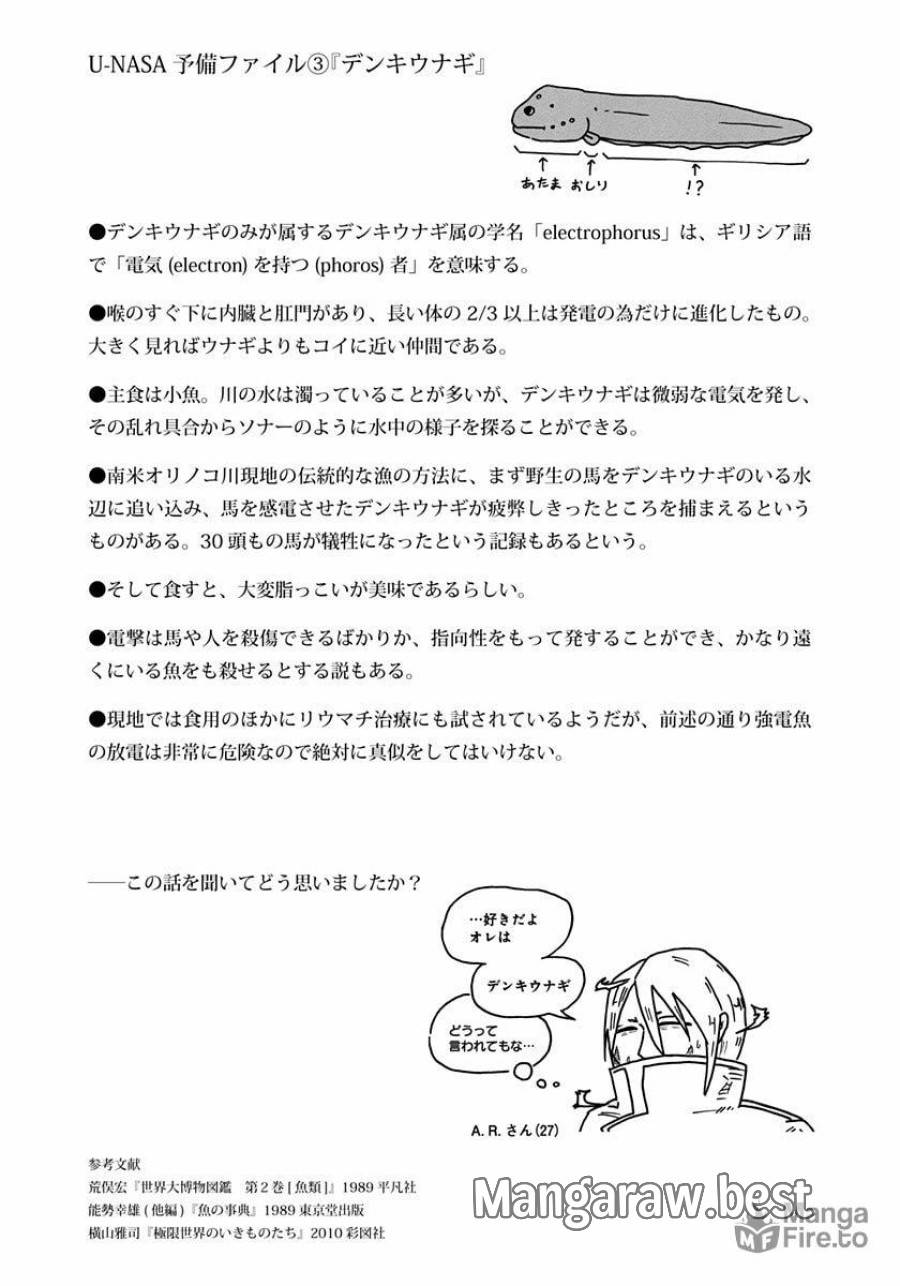 U-NASA 予備ファイル③『デンキウナギ』
あたま おしり !?
●デンキウナギのみが属するデンキウナギ属の学名「electrophorus」は、ギリシア語
で「電気 (electron) を持つ (phoros) 者」を意味する。
●喉のすぐ下に内臓と肛門があり、長い体の 2/3 以上は発電の為だけに進化したもの。
大きく見ればウナギよりもコイに近い仲間である。
●主食は小魚。川の水は濁っていることが多いが、デンキウナギは微弱な電気を発し、
その乱れ具合からソナーのように水中の様子を探ることができる。
●南米オリノコ川現地の伝統的な漁の方法に、まず野生の馬をデンキウナギのいる水
辺に追い込み、馬を感電させたデンキウナギが疲弊しきったところを捕まえるという
ものがある。30 頭もの馬が犠牲になったという記録もあるという。
●そして食すと、大変脂っこいが美味であるらしい。
●電撃は馬や人を殺傷できるばかりか、指向性をもって発することができ、かなり遠
くにいる魚をも殺せるとする説もある。
●現地では食用のほかにリウマチ治療にも試されているようだが、前述の通り強電魚
の放電は非常に危険なので絶対に真似をしてはいけない。
――この話を聞いてどう思いましたか？
…好きだよ
オレは
デンキウナギ
どうって
言われてもな…
A. R. さん (27)
参考文献
荒俣宏『世界大博物図鑑　第 2 巻 [ 魚類 ]』1989 平凡社
能勢幸雄 ( 他編 )『魚の事典』1989 東京堂出版
横山雅司『極限世界のいきものたち』2010 彩図社
Mangaraw.best
MF
Manga
Fire.to